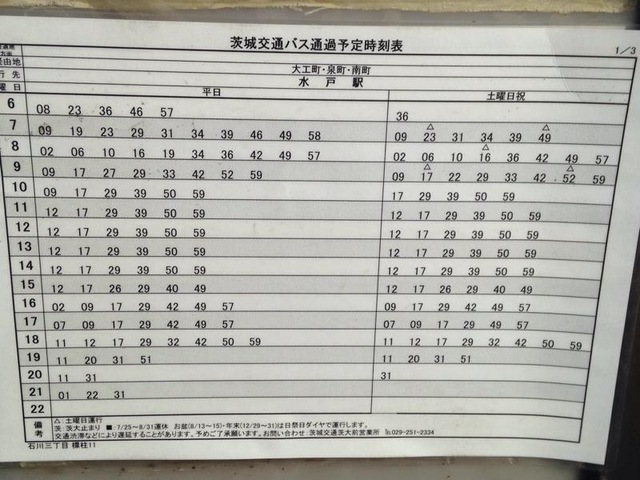 茨城交通バス通過予定時刻表
1/3
経由地 大工町・泉町・南町
行先 水戸駅
曜日 平日 土曜日祝
6 08 23 36 46 57 36
7 09 19 23 29 31 34 39 46 49 58 09 △23 31 34 39 △49
8 02 06 10 16 19 34 36 42 49 57 02 06 10 △16 36 42 49 57
9 09 17 27 29 33 42 52 59 09 △17 22 29 33 42 △52 59
10 09 17 29 39 50 59 17 29 39 50 59
11 12 17 29 39 50 59 12 17 29 39 50 59
12 12 17 29 39 50 59 12 17 29 39 50 59
13 12 17 29 39 50 59 12 17 29 39 50 59
14 12 17 29 39 50 59 12 17 29 39 50 59
15 12 17 26 29 40 49 12 17 26 29 40 49
16 02 09 17 29 42 49 57 09 17 29 42 49 57
17 07 09 17 29 42 49 57 07 09 17 29 42 49 57
18 11 12 17 29 32 42 50 59 11 12 17 29 32 42 50 59
19 11 20 31 51 11 20 31 51
20 11 31 31
21 01 22 31
22
備考 △:土曜日運行
茨:茨大止まり ■:7/25~8/31運休 お盆(8/13~15)・年末(12/29~31)は日祭日ダイヤで運行します。
交通渋滞などにより遅延することがあります。予めご了承願います。お問い合わせ 茨城交通茨大前営業所 ℡029-251-2334
石川三丁目 標柱11